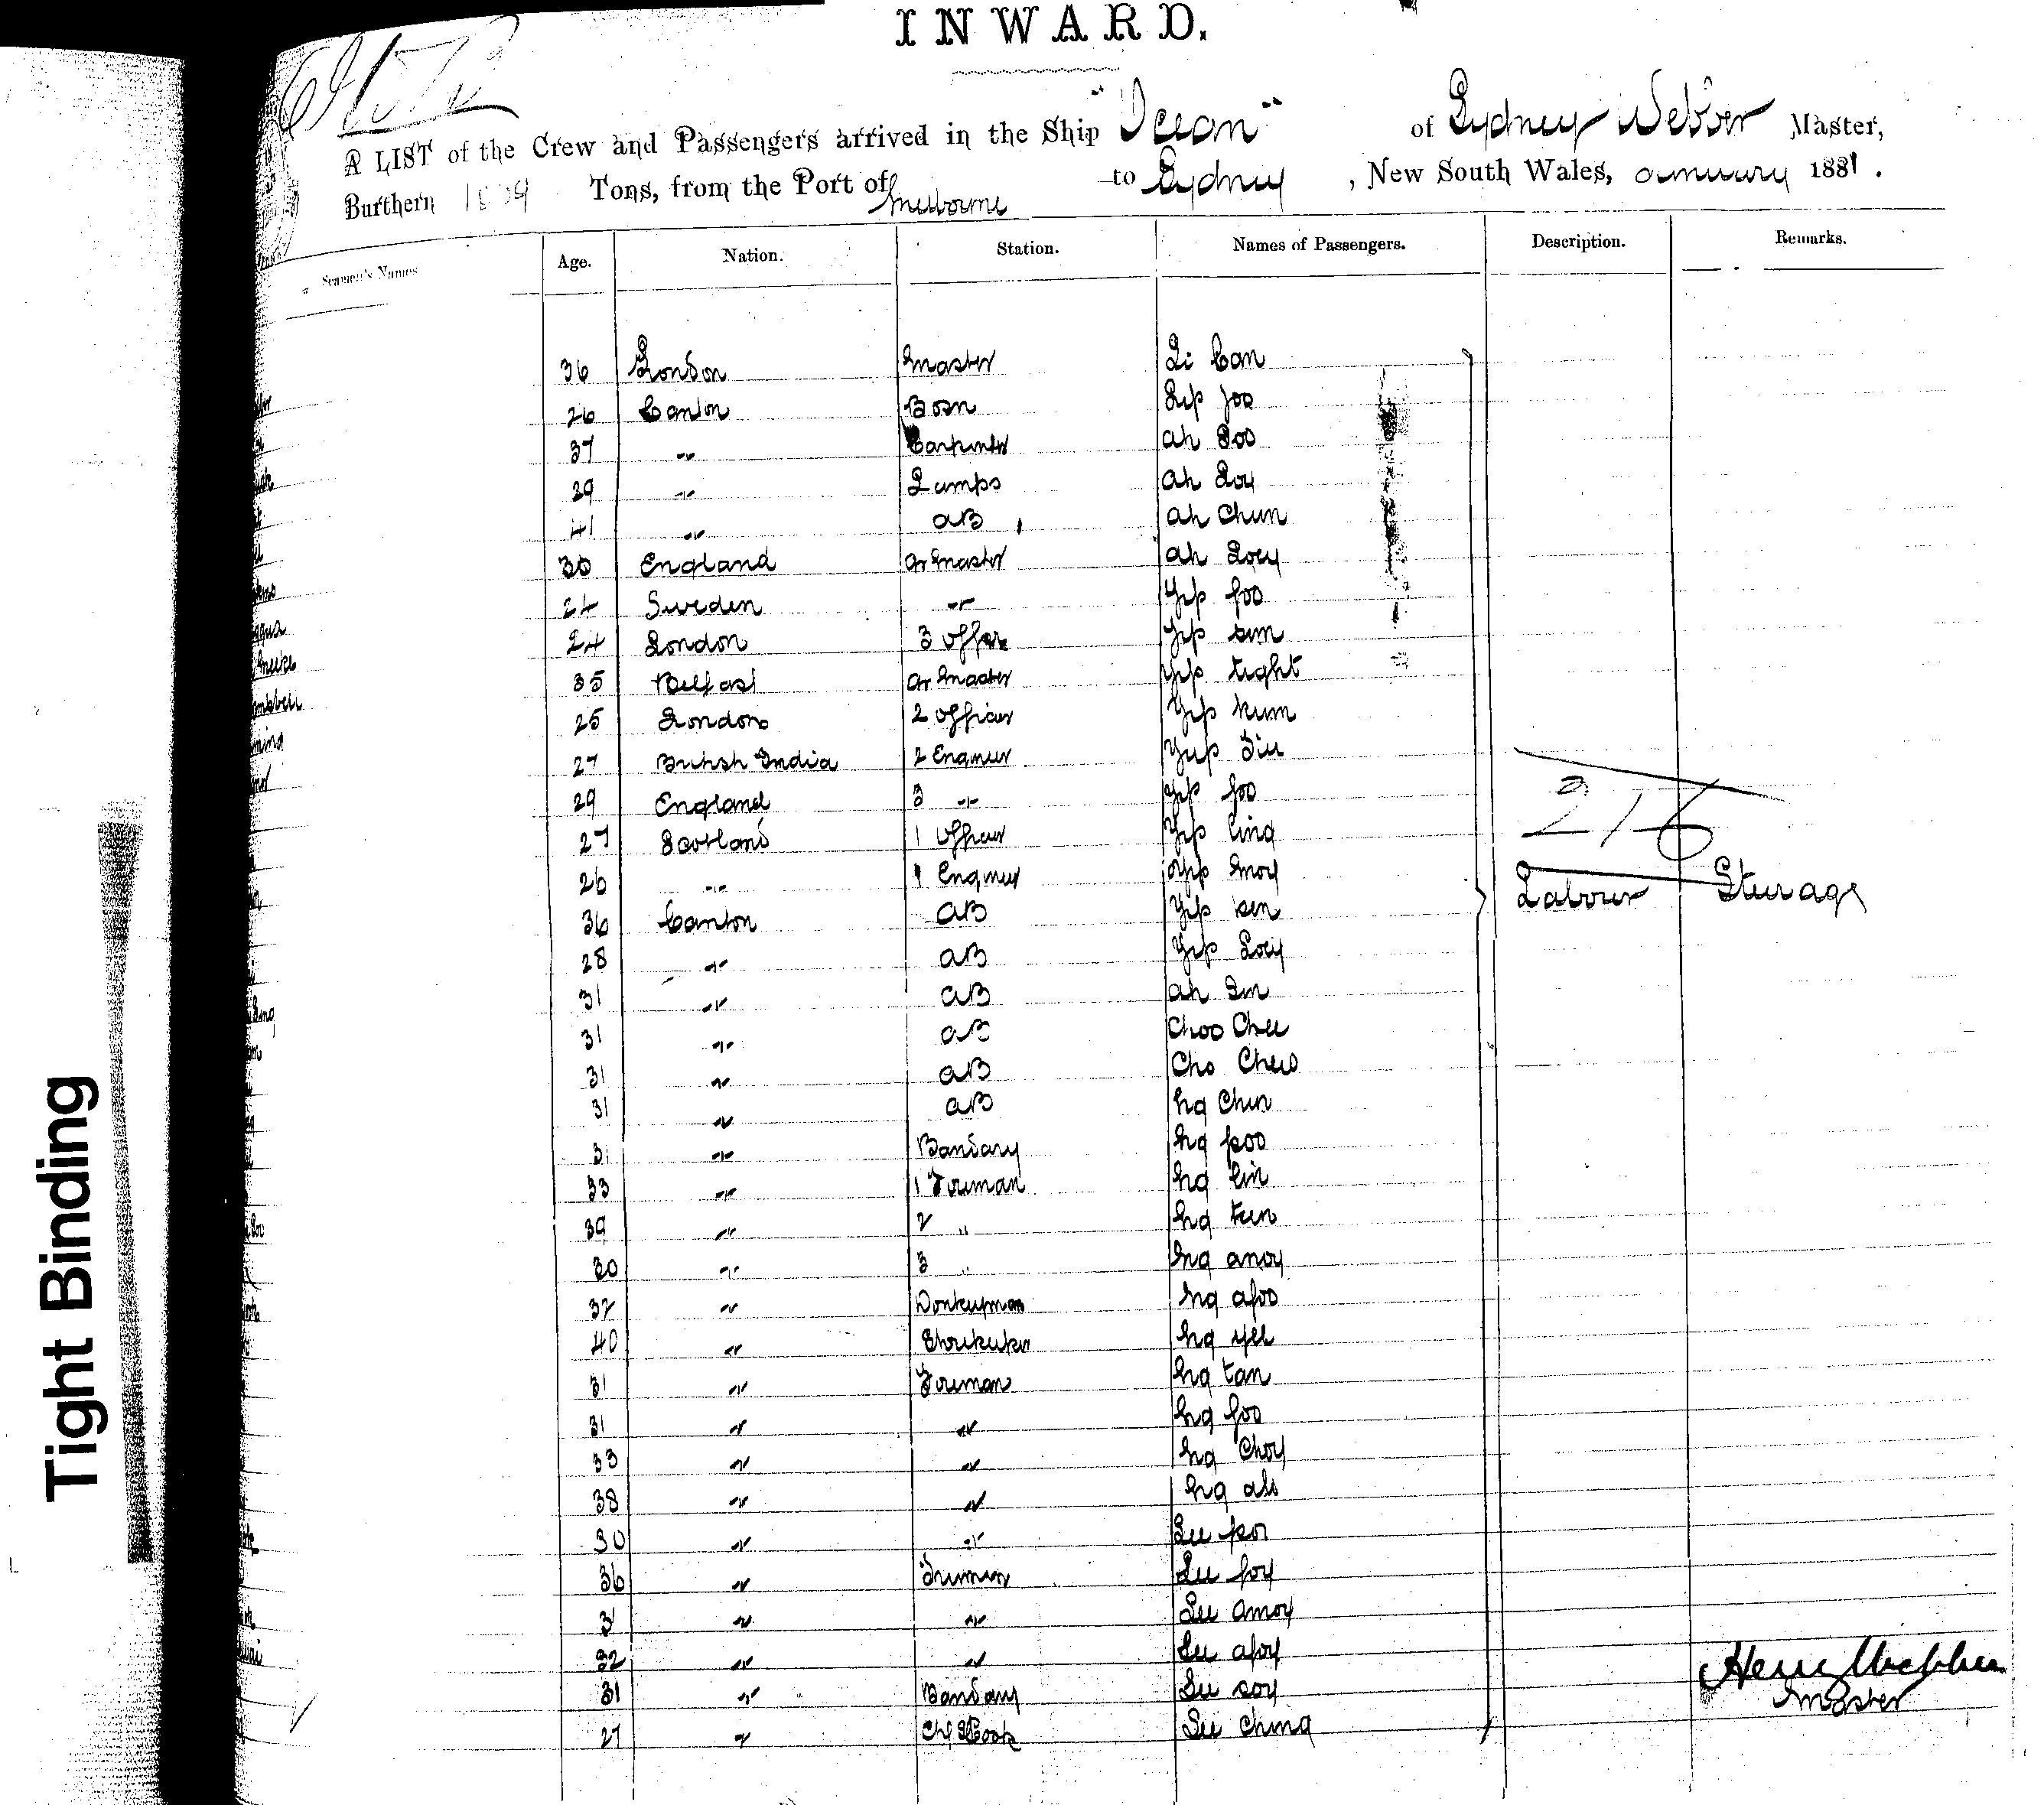 INWARD.
A LIST of the Crew and Passengers arrived in the Ship "Ocean" of Sydney Webber Master,
Burthern Tons, from the Port of Melbourne to Sydney, New South Wales, January 1881.
Seamen's Names Age. Nation. Station. Names of Passengers. Description. Remarks.
36 London Master Li Can
26 Canton Bosn Lip foo
37 " Carpenter ah Soo
29 " Lamps ah Loy
41 " AB ah Chun
30 England Qr Master ah Loey
24 Sweden " Yip foo
24 London 3 Offcer Yip sum
35 Belfast Qr Master Yip tight
25 London 2 Officer Yip kum
27 British India 2 Engineer Yip
29 England 3 " Yip foo
27 Scotland 1 Officer Yip ling
26 " 1 Engineer Yip moy
36 Canton AB Yip sen
216
Labour Sturage
28 " AB Yip Loey
31 " AB ah
31 " AB Choo Chee
31 " AB Cho Chew
31 " AB hg Chin
31 " Bandary hg poo
33 " 1 Fireman hg lin
39 " 2 " hg tun
30 " 3 " hg amoy
32 " Donkeyman hg afoo
40 " Storekeeper hg yee
31 " Fireman hg tan
31 " " hg foo
33 " " hg Choy
38 " " hg
30 " " Lee
36 " Trimmer Lee foy
31 " " Lee amoy
32 " " Lee afoy
31 " Bandary Lee soy
27 " Chf Cook Lee Ching
Henry Webber
Master
Tight Binding